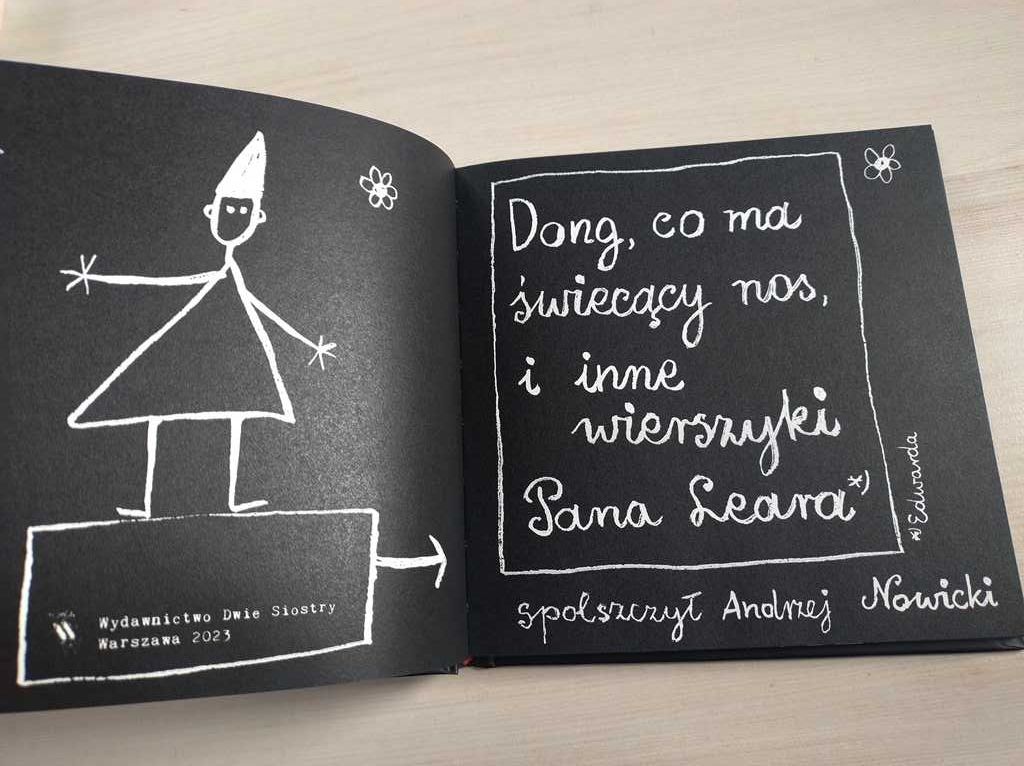 Wydawnictwo Dwie Siostry
Warszawa 2023
Dong, co ma
świecący nos,
i inne
wierszyki
Pana Leara*
* Edwarda
spolszczył Andrzej Nowicki